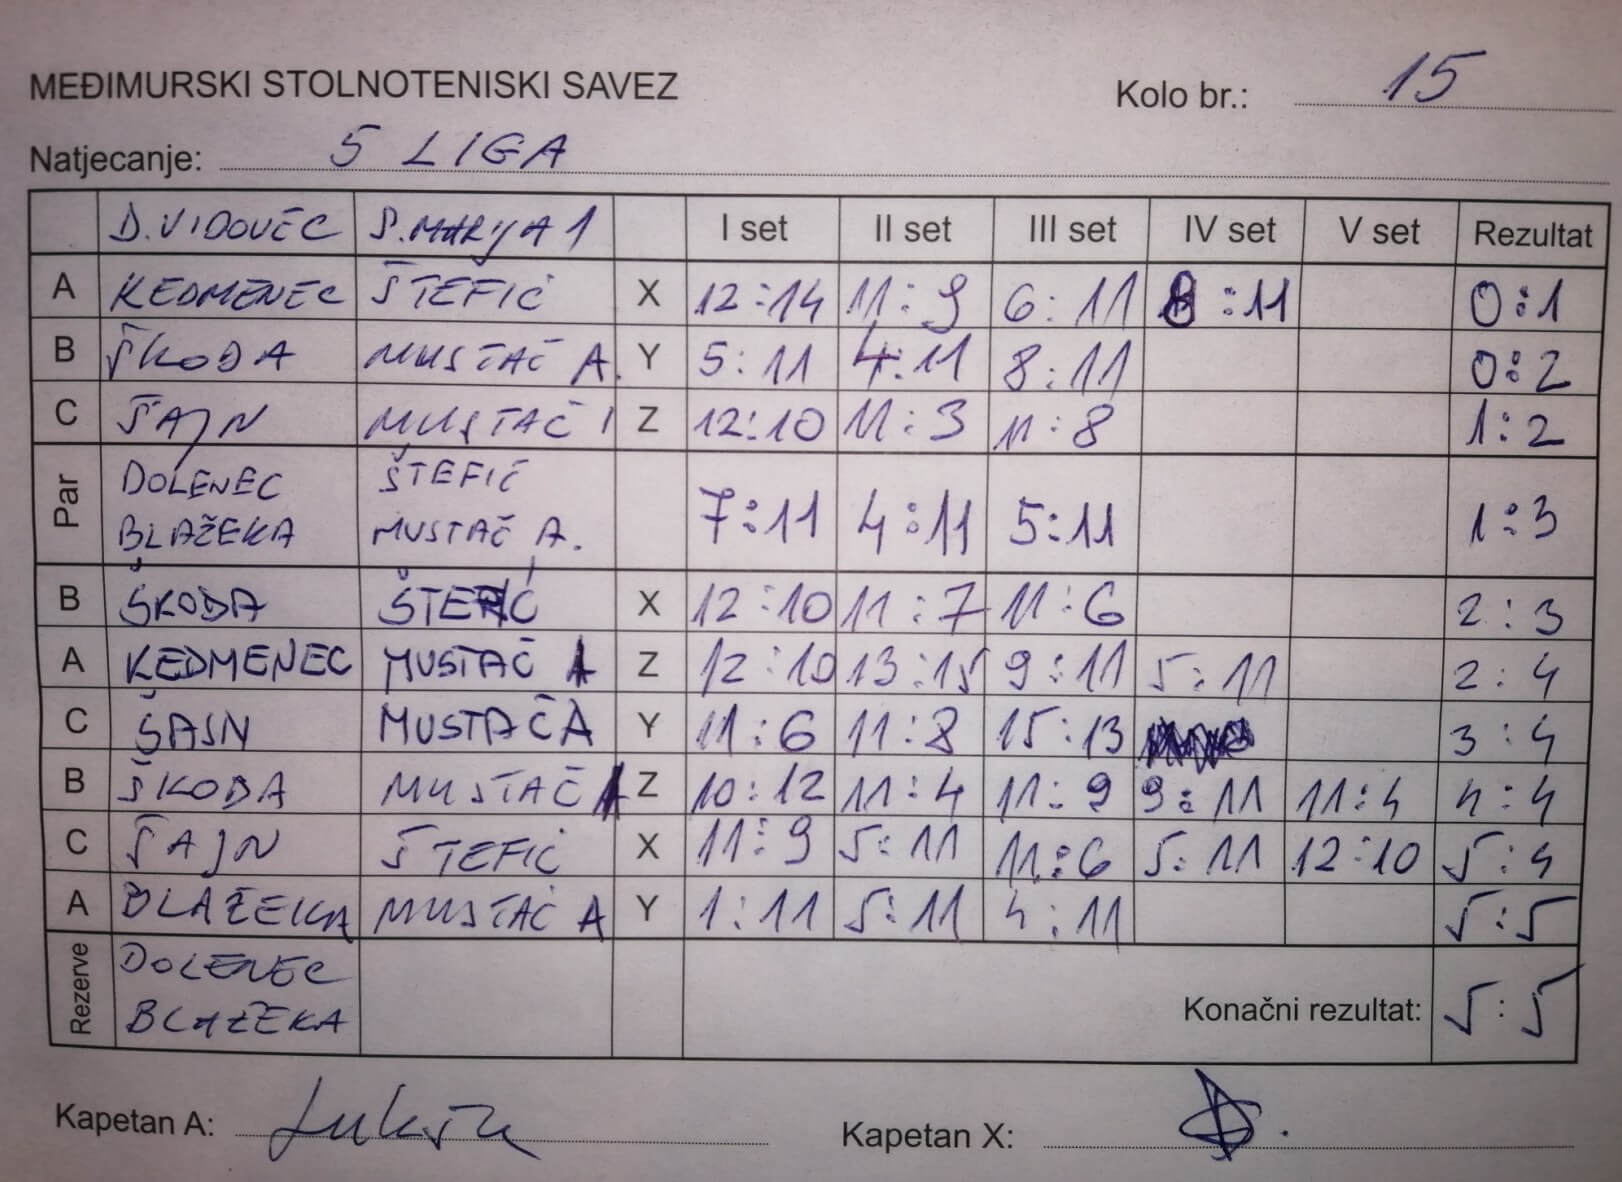 MEĐIMURSKI STOLNOTENISKI SAVEZ Kolo br.: 15
Natjecanje: 5 LIGA
D. VIDOVEC S. MARIJA 1 I set II set III set IV set V set Rezultat
A KEDMENEC ŠTEFIĆ X 12:14 11:9 6:11 8:11 0:1
B ŠKODA MUSTAČ A. Y 5:11 4:11 8:11 0:2
C ŠAJN MUSTAČ I Z 12:10 11:3 11:8 1:2
Par DOLENEC ŠTEFIĆ 7:11 4:11 5:11 1:3
BLAŽEKA MUSTAČ A.
B ŠKODA ŠTEFIĆ X 12:10 11:7 11:6 2:3
A KEDMENEC MUSTAČ I Z 12:10 13:15 9:11 5:11 2:4
C ŠAJN MUSTAČ A Y 11:6 11:8 15:13 3:4
B ŠKODA MUSTAČ I Z 10:12 11:4 11:9 9:11 11:4 4:4
C ŠAJN ŠTEFIĆ X 11:9 5:11 11:6 5:11 12:10 5:4
A BLAŽEKA MUSTAČ A Y 1:11 5:11 4:11 5:5
Rezerve DOLENEC
BLAŽEKA Konačni rezultat: 5:5
Kapetan A: Kapetan X: